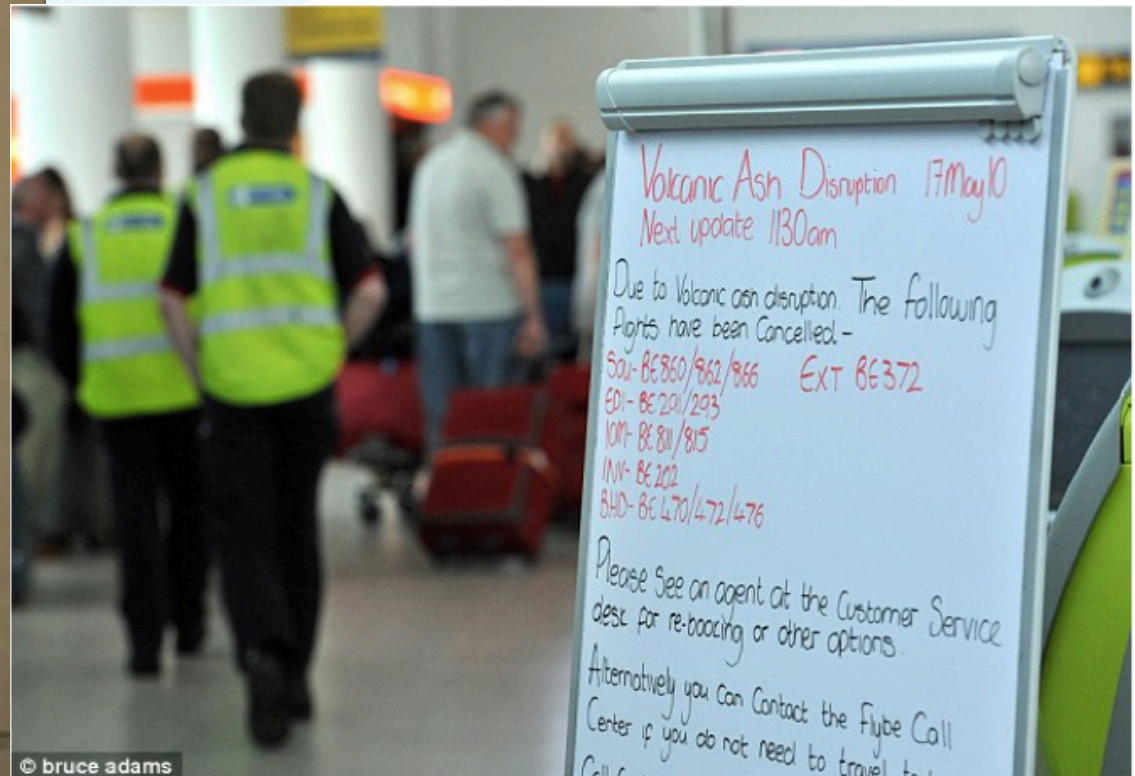 Volcanic Ash Disruption 17May10
Next update 1130am
Due to Volcanic ash disruption. The following
flights have been Cancelled -
SOU- BE860/862/866 EXT BE372
EDI- BE291/293
IOM- BE811/815
INV- BE202
BHD- BE470/472/476
Please See an agent at the Customer Service
desk for re-boocing or other options.
Alternatively you can Contact the Flybe Call
Center if you do not need to travel
Call
© bruce adams